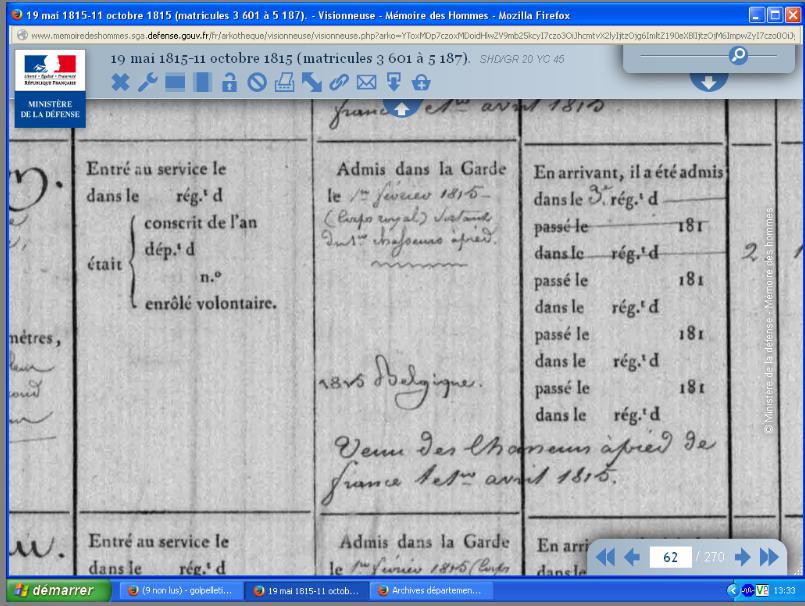 19 mai 1815-11 octobre 1815 (matricules 3 601 à 5 187). - Visionneuse - Mémoire des Hommes - Mozilla Firefox
www.memoiredeshommes.sga.defense.gouv.fr/fr/arkotheque/visionneuse/visionneuse.php?arko=
19 mai 1815-11 octobre 1815 (matricules 3 601 à 5 187). SHD/GR 20 YC 45
Liberté • Égalité • Fraternité
RÉPUBLIQUE FRANÇAISE
MINISTÈRE
DE LA DÉFENSE
france avril 1815.
Entré au service le
dans le rég.t d
était
conscrit de l'an
dép.t d
n.o
enrôlé volontaire.
Admis dans la Garde
le 1er février 1815
(Corps royal)
chasseurs à pied.
1815 Belgique.
Venu des Chasseurs à pied de
france le 1er avril 1815.
En arrivant, il a été admis
dans le 3e rég.t d
passé le 181
dans le rég.t d
passé le 181
dans le rég.t d
passé le 181
dans le rég.t d
passé le 181
dans le rég.t d
2
mètres,
© Ministère de la défense - Mémoire des hommes
Entré au service le
dans le rég.t d
Admis dans la Garde
le 1er février 1815 (Corps
En arri
dans le
62 / 270
démarrer
(9 non lus) - golpelleti...
19 mai 1815-11 octob...
Archives départemen...
13:33